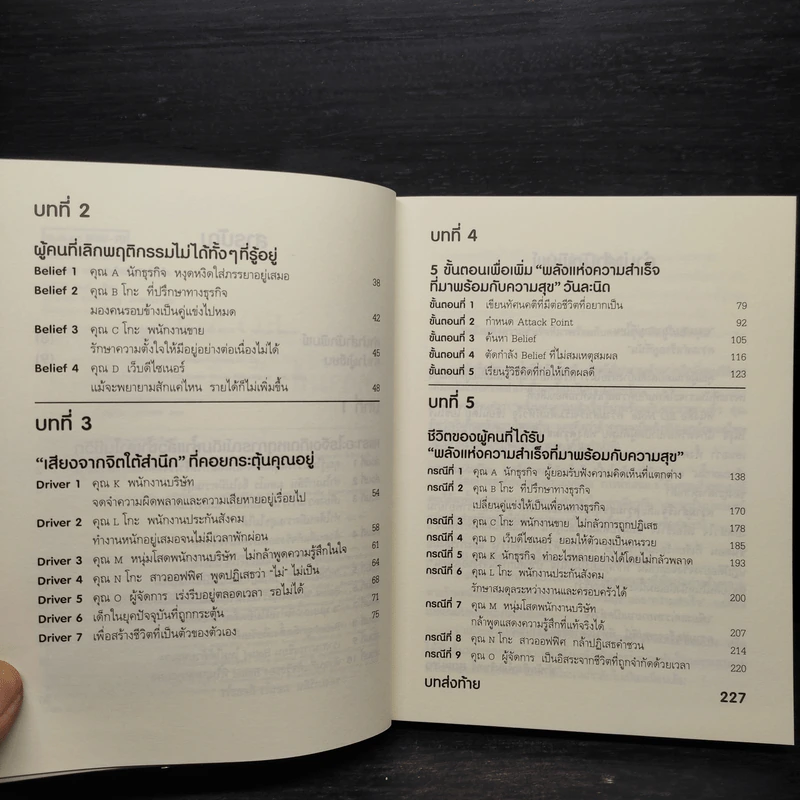 บทที่ 2
ผู้คนที่เลิกพฤติกรรมไม่ได้ทั้งๆที่รู้อยู่
Belief 1 คุณ A นักธุรกิจ หงุดหงิดใส่ภรรยาอยู่เสมอ 38
Belief 2 คุณ B โกะ ที่ปรึกษาทางธุรกิจ
มองคนรอบข้างเป็นคู่แข่งไปหมด 42
Belief 3 คุณ C โกะ พนักงานขาย
รักษาความตั้งใจให้มีอยู่อย่างต่อเนื่องไม่ได้ 45
Belief 4 คุณ D เว็บดีไซเนอร์
แม้จะพยายามสักแค่ไหน รายได้ก็ไม่เพิ่มขึ้น 48
บทที่ 3
“เสียงจากจิตใต้สำนึก” ที่คอยกระตุ้นคุณอยู่
Driver 1 คุณ K พนักงานบริษัท
จดจำความผิดพลาดและความเสียหายอยู่เรื่อยไป 54
Driver 2 คุณ L โกะ พนักงานประกันสังคม
ทำงานหนักอยู่เสมอจนไม่มีเวลาพักผ่อน 58
Driver 3 คุณ M หนุ่มโสดพนักงานบริษัท ไม่กล้าพูดความรู้สึกในใจ 61
Driver 4 คุณ N โกะ สาวออฟฟิศ พูดปฏิเสธว่า “ไม่” ไม่เป็น 64
Driver 5 คุณ O ผู้จัดการ เร่งรีบอยู่ตลอดเวลา รอไม่ได้ 68
Driver 6 เด็กในยุคปัจจุบันที่ถูกกระตุ้น 71
Driver 7 เพื่อสร้างชีวิตที่เป็นตัวของตัวเอง 75
บทที่ 4
5 ขั้นตอนเพื่อเพิ่ม “พลังแห่งความสำเร็จ
ที่มาพร้อมกับความสุข” วันละนิด
ขั้นตอนที่ 1 เขียนทัศนคติที่มีต่อชีวิตที่อยากเป็น 79
ขั้นตอนที่ 2 กำหนด Attack Point 92
ขั้นตอนที่ 3 ค้นหา Belief 105
ขั้นตอนที่ 4 ตัดกำลัง Belief ที่ไม่สมเหตุสมผล 116
ขั้นตอนที่ 5 เรียนรู้วิธีคิดที่ก่อให้เกิดผลดี 123
บทที่ 5
ชีวิตของผู้คนที่ได้รับ
“พลังแห่งความสำเร็จที่มาพร้อมกับความสุข”
กรณีที่ 1 คุณ A นักธุรกิจ ผู้ยอมรับฟังความคิดเห็นที่แตกต่าง 138
กรณีที่ 2 คุณ B โกะ ที่ปรึกษาทางธุรกิจ
เปลี่ยนคู่แข่งให้เป็นเพื่อนทางธุรกิจ 170
กรณีที่ 3 คุณ C โกะ พนักงานขาย ไม่กลัวการถูกปฏิเสธ 178
กรณีที่ 4 คุณ D เว็บดีไซเนอร์ ยอมให้ตัวเองเป็นคนรวย 185
กรณีที่ 5 คุณ K นักธุรกิจ ทำอะไรหลายอย่างได้โดยไม่กลัวพลาด 193
กรณีที่ 6 คุณ L โกะ พนักงานประกันสังคม
รักษาสมดุลระหว่างงานและครอบครัวได้ 200
กรณีที่ 7 คุณ M หนุ่มโสดพนักงานบริษัท
กล้าพูดแสดงความรู้สึกที่แท้จริงได้ 207
กรณีที่ 8 คุณ N โกะ สาวออฟฟิศ กล้าปฏิเสธคำชวน 214
กรณีที่ 9 คุณ O ผู้จัดการ เป็นอิสระจากชีวิตที่ถูกจำกัดด้วยเวลา 220
บทส่งท้าย 227